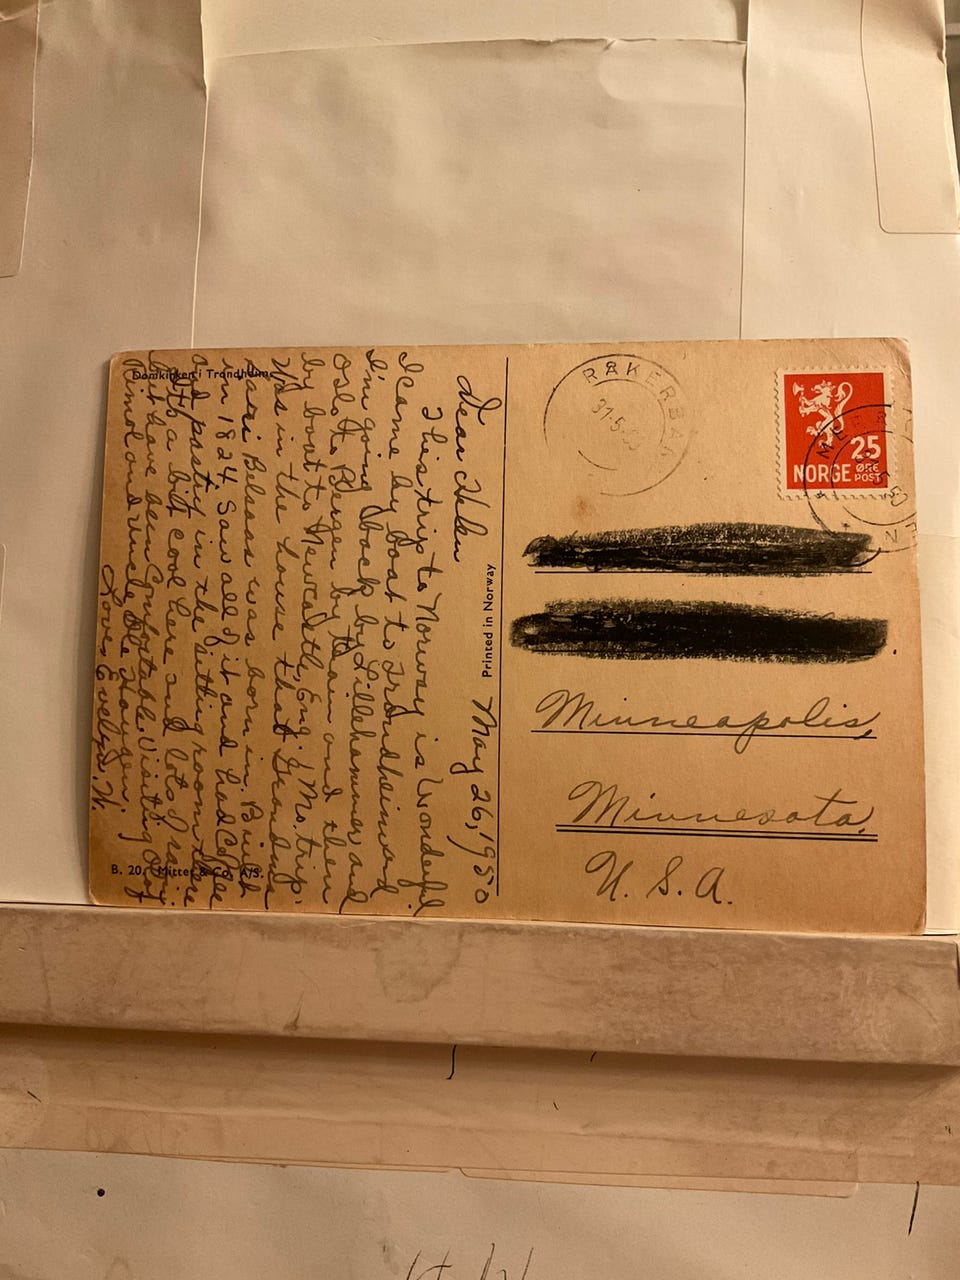 Domkirken i Trondheim
May 26, 1950
Dear Helen
This trip to Norway is wonderful
I came by boat to Trondheim and
I'm going back by Lillehammer and
Oslo to Bergen by train and then
by boat to Newcastle, Eng. Mo. trip.
Was in the house that Grandma
Kari Belaas was born in. Built
in 1824. Saw all of it and had Coffee
and pastry in the sitting room there
Its a bit cool here and lots of rain
but have been Comfortable. Visiting
Simol and Uncle Ole Haugen.
Love, Evelyn. W.
B. 20. Mittet & Co. A/S.
Printed in Norway
RØKERBAKK
31-5-50
NORGE
25
ØRE
POST
Minneapolis,
Minnesota,
U. S. A.